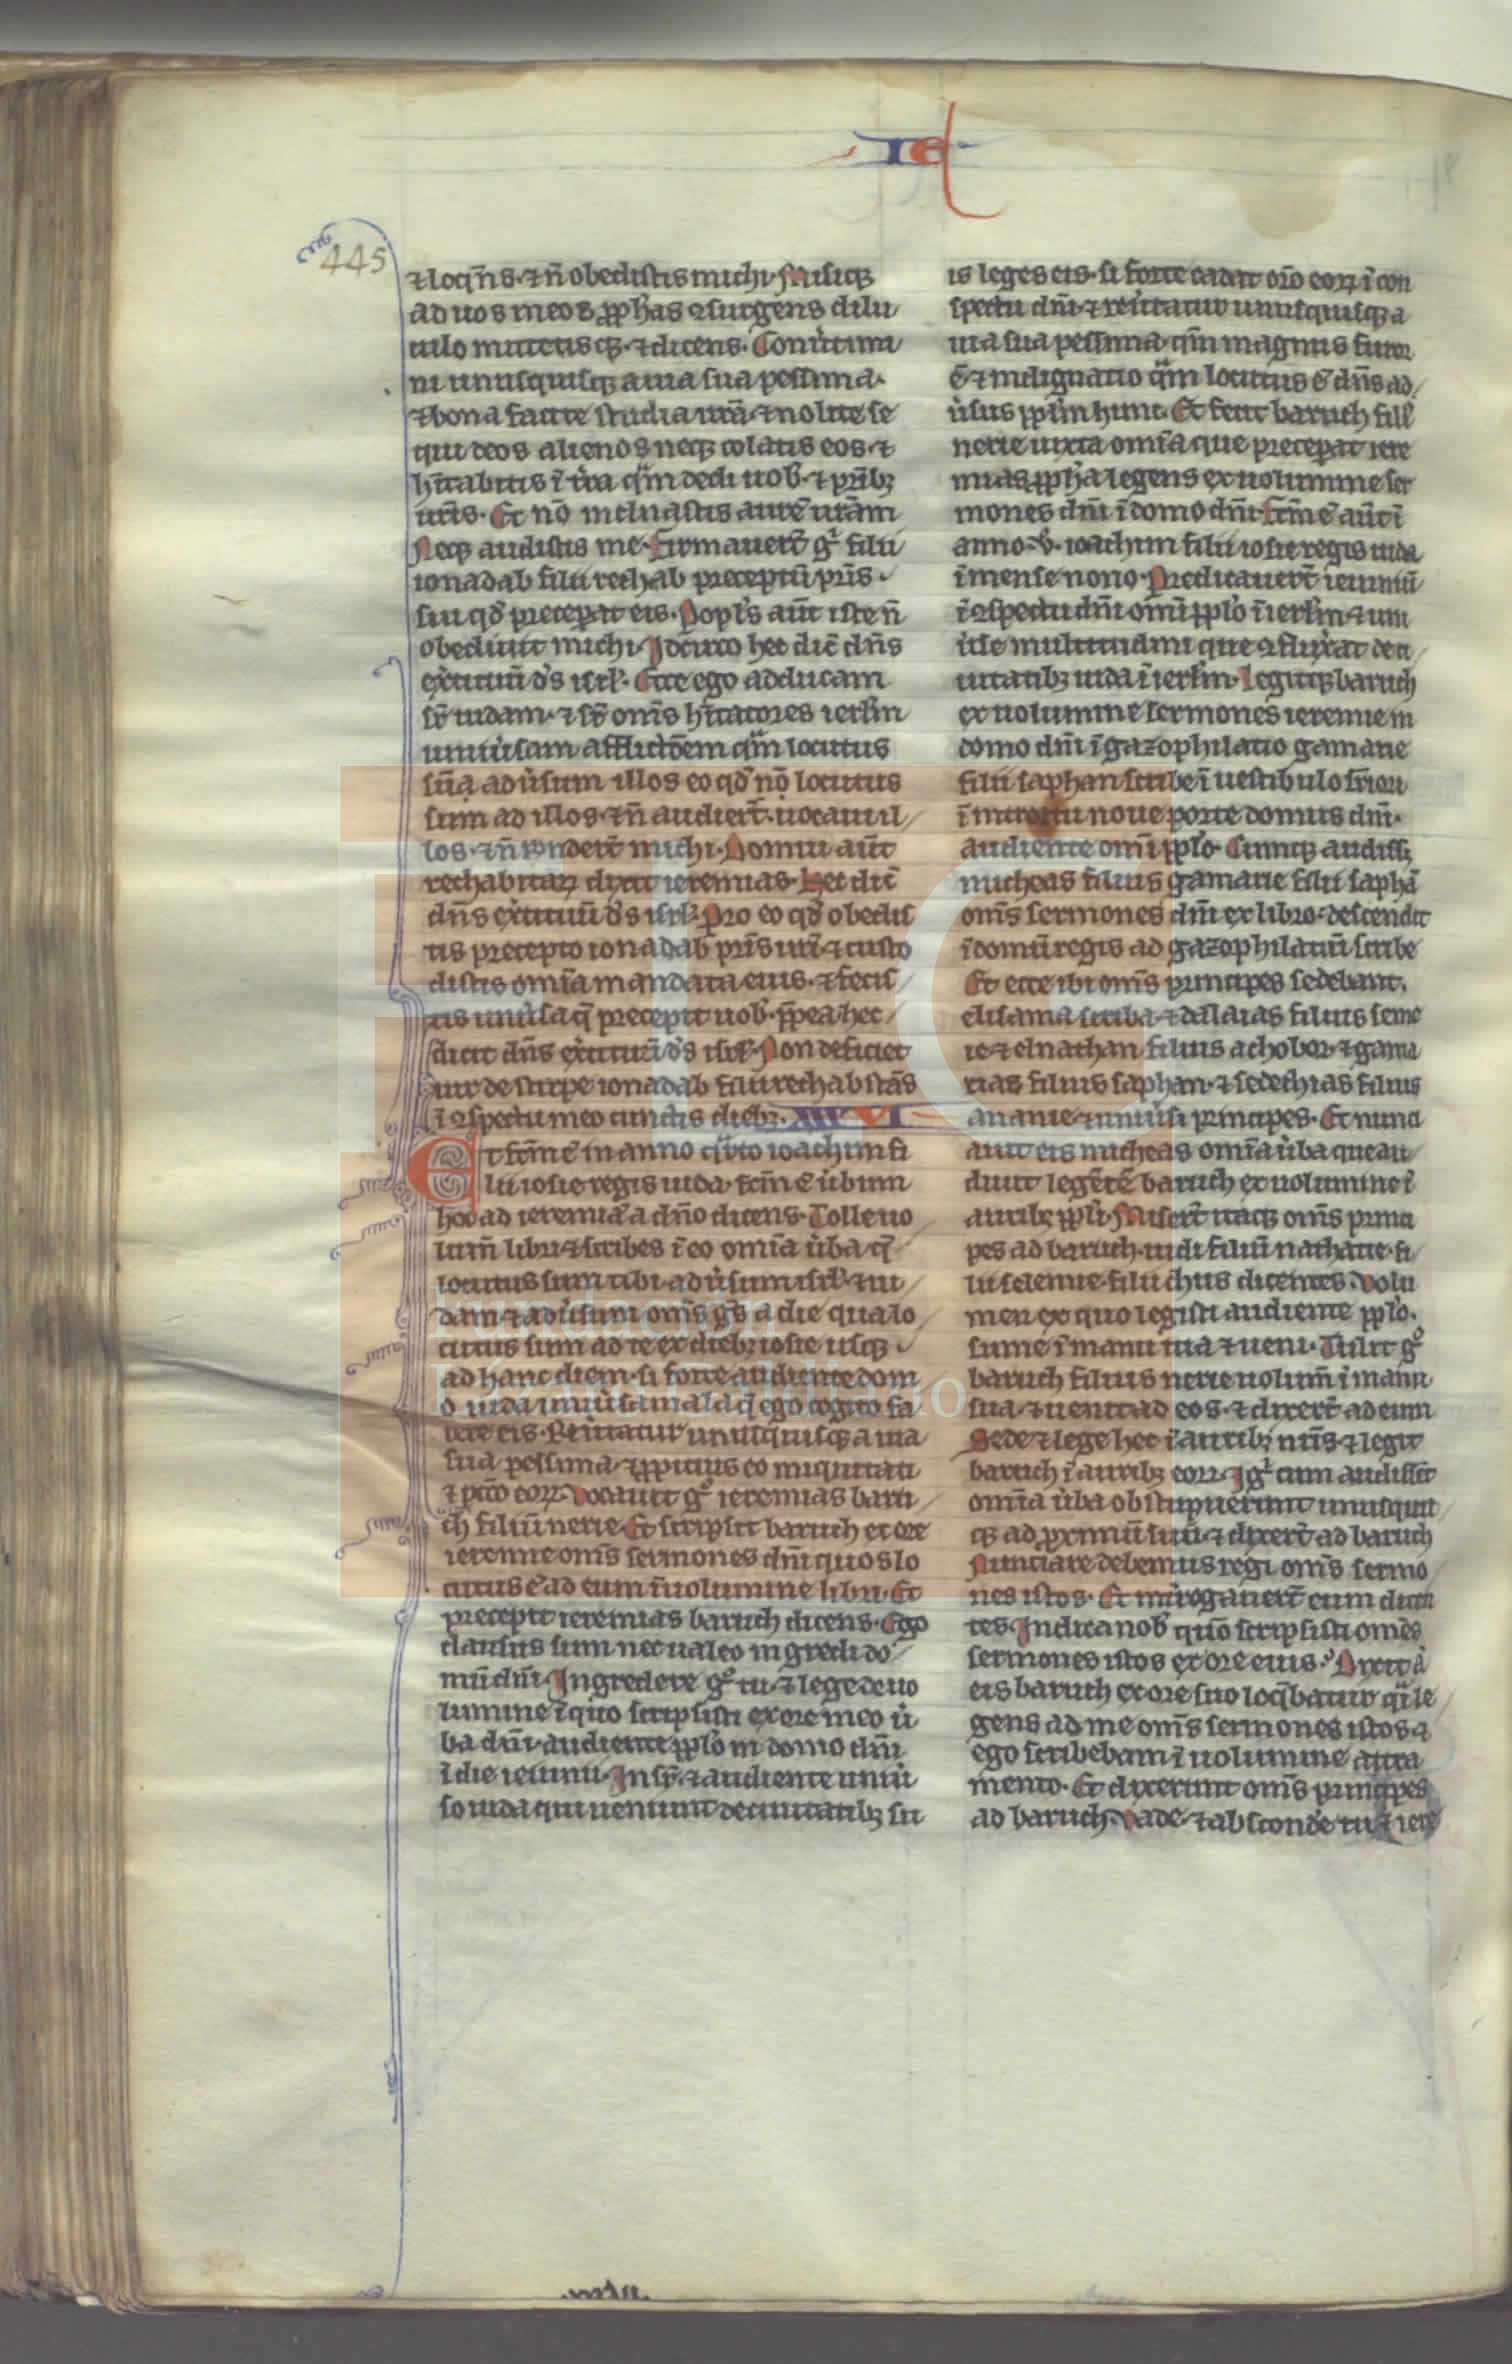 IE
445
⁊ loq̄ns. ⁊ n̄ obedistis michi. Misiq;
ad uos meos ꝓph̄as ꝯsurgens dilu
culo mittensq; ⁊ dicens. Conu̇timi
ni unusquisq; a uia sua pessima.
⁊ bona facite studia ur̄a. ⁊ nolite se
qui deos alienos neq; colatis eos. ⁊
hītabitis ī t̄ra q̄m dedi uob̄. ⁊ pr̄ib;
ur̄is. Et nō inclinastis aurē urām
Neq; audistis me. Firmauert̄ gͥ filii
ionadab filii rechab preceptū pr̄is
sui qd̄ preceꝑat eis. Popl̄s aūt iste n̄
obediuit michi. Idcirco hec dic̄ dn̄s
ex̄cituū ds̄ isrl̄. Ecce ego adducam
sr̄ iudam. ⁊ sr̄ om̄s hītatores ierl̄m
uniu̇sam afflictōem q̄m locutus
sū adu̇sum illos eo qd̄ nō locutus
sum ad illos. ⁊ n̄ audiert̄. uocaui il
los. ⁊ n̄ rn̄dert̄ michi. Domui aūt
rechabitaꝝ dixit ieremias. Hec dic̄
dn̄s ex̄cituū ds̄ isrl̄. Pro eo qd̄ obedis
tis precepto ionadab pr̄is ur̄i. ⁊ custo
distis om̄ia mandata eius. ⁊ fecis
tis uniu̇sa q̄ precepit uob̄. ꝓpea hec
dicit dn̄s ex̄cituū ds̄ isrl̄. Non deficiet
uir de stirpe ionadab filii rechab stās
ī ꝯspectu meo cunctis dieb;. XXXVI
Et fcm̄ ē in anno qͣrto ioachim fi
lii iosie regis iuda. fcm̄ ē u̇bum
hoc ad ieremiā a dn̄o dicens. Tolle uo
lum̄ libri ⁊ scribes ī eo om̄ia u̇ba q̄
locutus sum tibi. adu̇sum isrl̄ ⁊ iu
dam ⁊ adu̇sum om̄s gs̄ a die qua lo
cutus sum ad te ex dieb; iosie usq;
ad hanc diem. si forte audiente dom
o iuda uniu̇sa mala q̄ ego cogito fa
cere eis. Reu̇tatur unusquisq; a uia
sua pessima. ⁊ ꝓpicius ero iniquitati
⁊ pcc̄o eoꝝ. Vocauit gͦ ieremias baru
ch filiū nerie. Et scripsit baruch ex ore
ieremie om̄s sermones dn̄i quos lo
cutus ē ad eum ī uolumine libri. Et
precepit ieremias baruch dicens. Ego
clausus sum nec ualeo ingredi do
mū dn̄i. Ingredere gͦ tu. ⁊ lege de uo
lumine ī quo scripsisti ex ore meo u̇
ba dn̄i. audiente ppl̄o in domo dn̄i
ī die ieiunii. Insr̄. ⁊ audiente uniu̇
so iuda qui ueniunt de ciuitatib; su
is leges eis. si forte cadat orō eoꝝ ī con
spectu dn̄i. ⁊ reu̇tatur unusquisq; a
uia sua pessima. qm̄ magnus furor
ē ⁊ indignatio q̄m locutus ē dn̄s ad
u̇sus ppl̄m hunc. Et fecit baruch fili
nerie iuxta om̄ia que preceꝑat iere
mias ꝓph̄a legens ex uolumine ser
mones dn̄i ī domo dn̄i. Fcm̄ ē aūt ī
anno .v. ioachim filii iosie regis iuda
ī mense nono. Predicauert̄ ieiuniū
ī ꝯspectu dn̄i om̄i ppl̄o ī ierl̄m ⁊ uni
u̇se multitudini que ꝯfluxat de ci
uitatib; iuda ī ierl̄m. Legitq; baruch
ex uolumine sermones ieremie in
domo dn̄i ī gazophilatio gamarie
filii saphan scribe ī uestibulo sr̄iori
ī introitu noue porte domus dn̄i.
audiente om̄i ppl̄o. Cumq; audiss;
micheas filius gamarie filii saphā
om̄s sermones dn̄i ex libro. descendit
ī domū regis ad gazophilatiū scribe
Et ecce ibi om̄s principes sedebant.
elisama scriba. ⁊ dalaias filius seme
ie ⁊ elnathan filius achobor. ⁊ gama
rias filius saphan. ⁊ sedechias filius
ananie. ⁊ uniu̇si principes. Et nunci
auit eis micheas om̄ia u̇ba que au
diuit legēte baruch ex uolumine ī
aurib; ppl̄i. Misert̄ itaq; om̄s princi
pes ad baruch. iudi filiū nathanie. fi
lii selemie. filii chusi dicentes. Volu
men ex quo legisti audiente ppl̄o.
sume ī manu tua ⁊ ueni. Tulit gͦ
baruch filius nerie uolum̄ ī manu
sua. ⁊ uenit ad eos. ⁊ dixert̄ ad eum
Sede ⁊ lege hec ī aurib; nr̄is ⁊ legit
baruch ī aurib; eoꝝ. Igͥ cum audissēt
om̄ia u̇ba obstupuerunt unusquis
q; ad ꝓximū suū ⁊ dixert̄ ad baruch
Nunciare debemus regi om̄s sermo
nes istos. Et int̄rogauert̄ eum dicen
tes. Indica nob̄ quō scripsisti omēs
sermones istos ex ore eius. Dixit ā
eis baruch ex ore suo loq̄batur q̄i le
gens ad me om̄s sermones istos ⁊
ego scribebam ī uolumine attra
mento. Et dixerunt om̄s principes
ad baruch. Vade ⁊ absconde tu ⁊ iere
Lázaro Galdiano